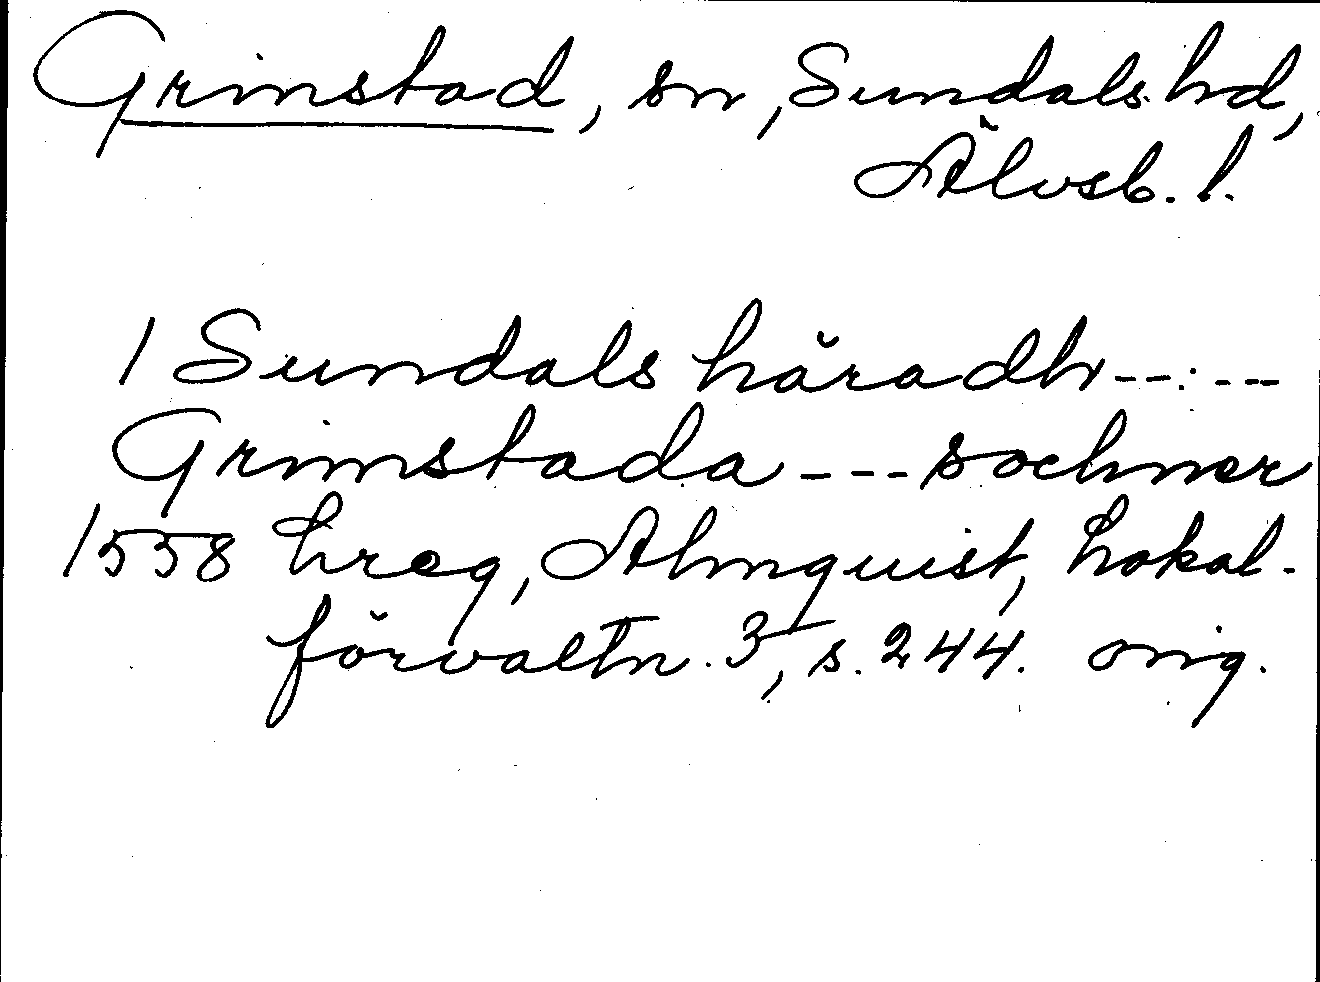 Grinstad, sn, Sundals hd,
Älvsb. l.
I Sundals häradh --:---
Grimstada --- sochner
1558 hreg, Almquist, Lokal-
förvaltn. 3, s. 244. orig.